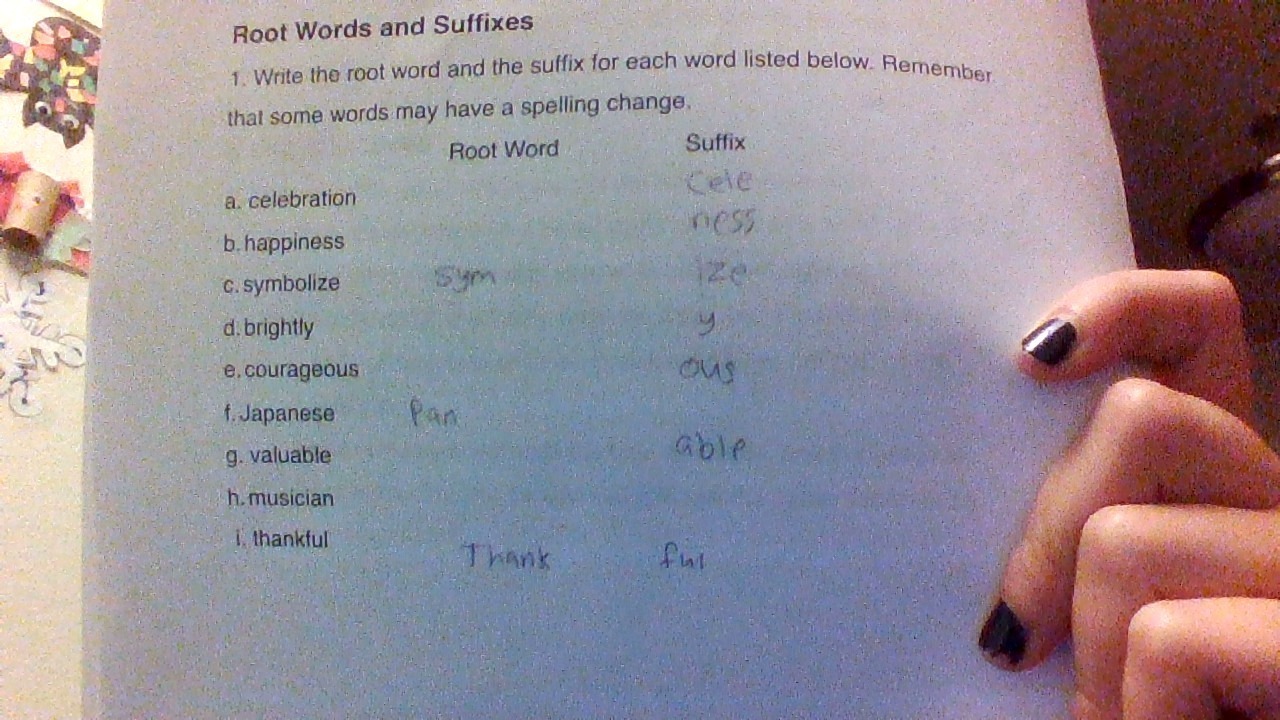 Root Words and Suffixes
1. Write the root word and the suffix for each word listed below. Remember
that some words may have a spelling change.
Root Word Suffix
a. celebration Cele
b. happiness ness
c. symbolize Sym ize
d. brightly y
e. courageous ous
f. Japanese Pan
g. valuable able
h. musician
i. thankful
Thank ful